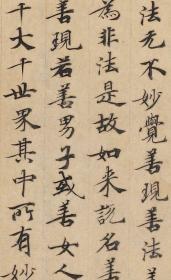 法無不妙覺善現善法善
為非法是故如来說名善
善現若善男子或善女人
千大千世界其中所有妙